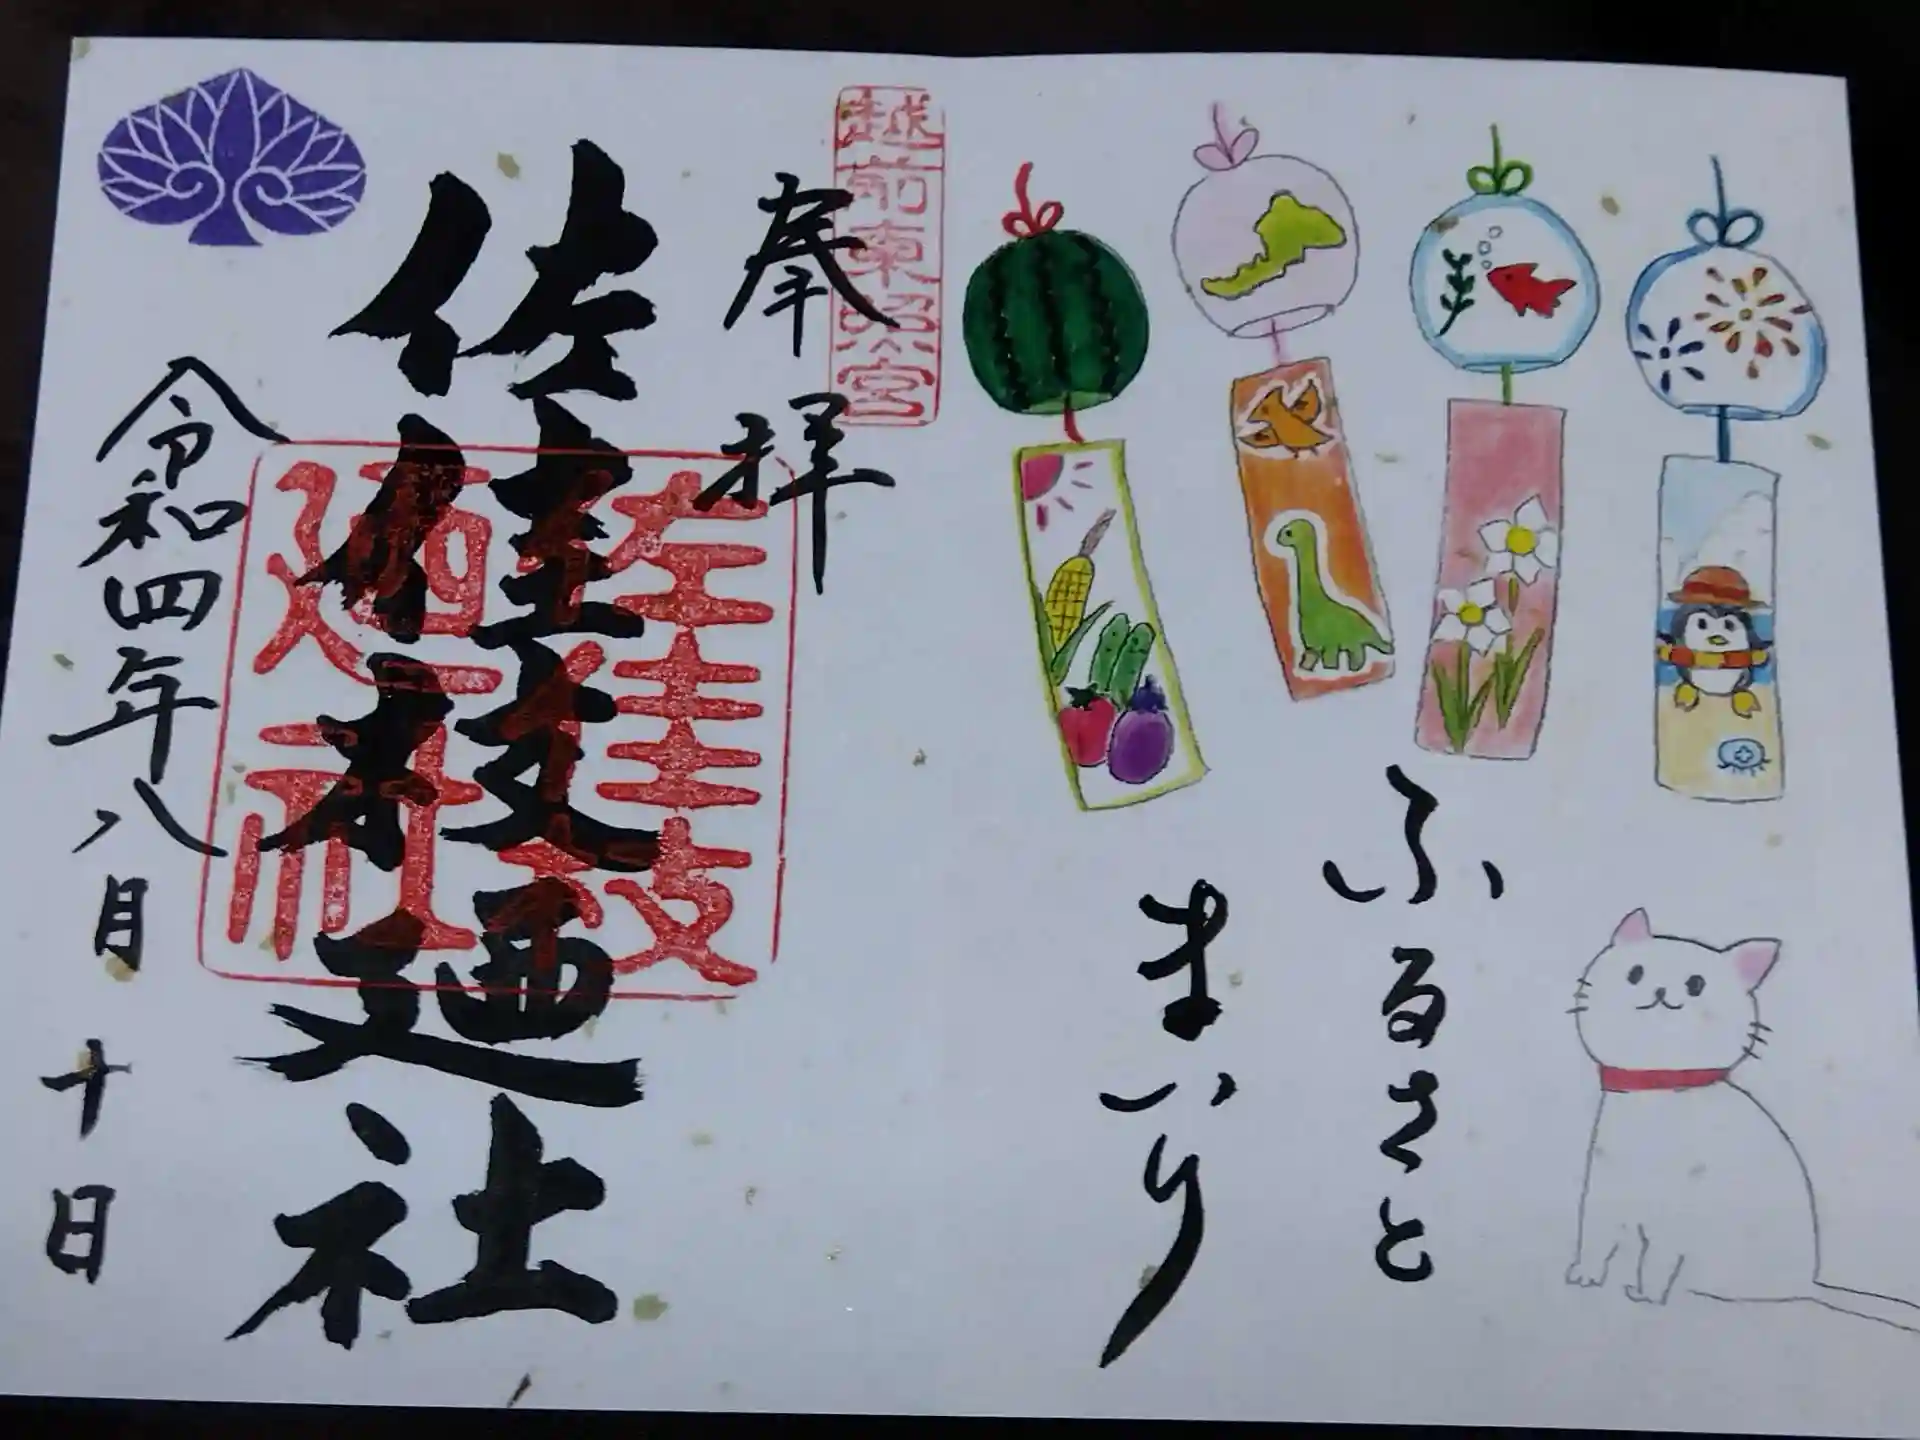 ふるさと
まいり
越前東照宮
奉拝
佐佳枝廼社
佐佳枝廼社
令和四年八月十日